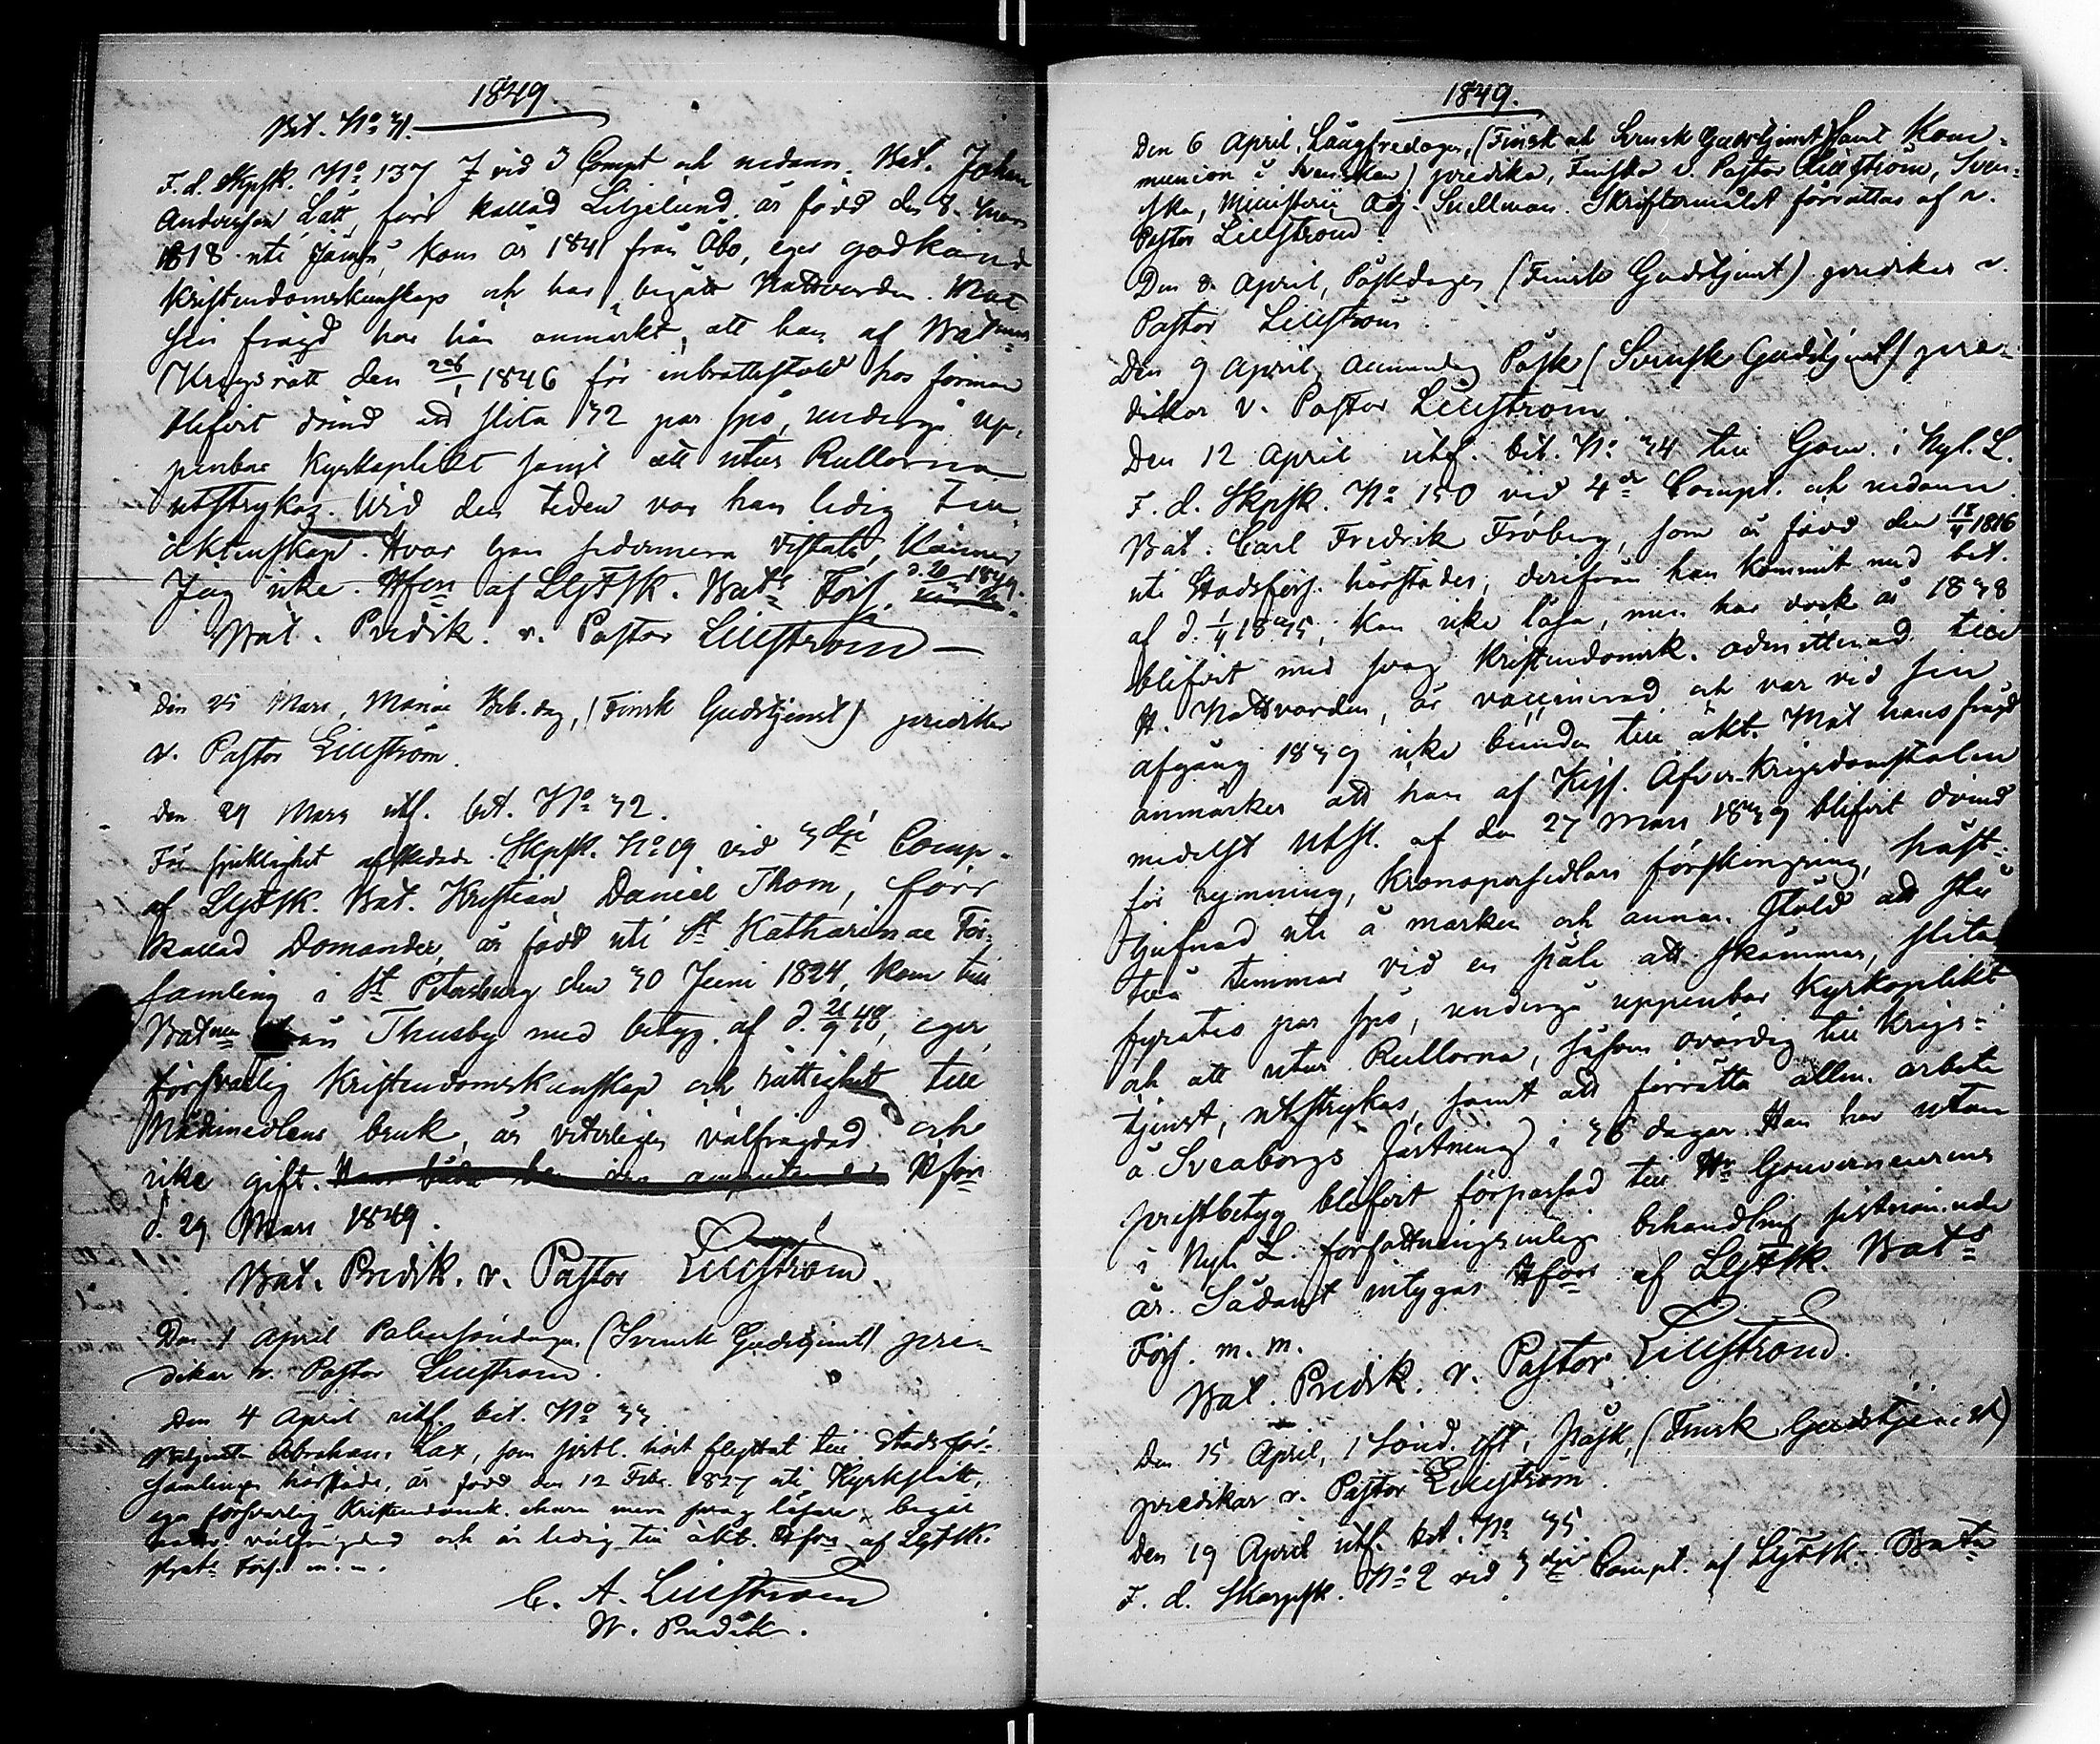 1849.
Bet. No 31.
F. d. Skpsk. No 137 vid 3 Compt och nedann. Bat. Johan
Andersson Lätt, förr kallad Liljelund, är född den 8. Mars
1818 uti Jämsä, kom år 1841 från Åbo, eger godkänd
Kristendomskunskap och har begått Nattvarden. Mot
sin frägd har han anmärkt, att han af Batnens
Krigsrätt den 26/1 1846 för inbrottsstöld hos förman
blifvit dömd att slita 32 par spö, undergå up-
penbar Kyrkoplikt samt att utur Rullorna
utstrykas. Wid den tiden var han ledig till
äktenskap. Hvar han sedermera vistats, känner
Jag icke. Hfors af LGFSk. Bats Förs. d. 20 1849.
Bat. Predik. v. Pastor Lillström
Den 25 Mars, Mariæ Beb. dag, (Finsk Gudstjenst) predikar
v. Pastor Lillström.
Den 29 Mars utf. bet. No 32.
För sjuklighet afskedade Skpsk. No 19 vid 3dje Comp.
af LGFSk. Bat. Kristian Daniel Thom, förr
kallad Domander, är född uti St Katharinae För-
samling i St Petersburg den 30 Juni 1824, kom till
Batnen från Thusby med betyg af d. 21/9 48, eger
försvarlig Kristendomskunskap och rättighet till
Nådemedlens bruk, är veterligen välfrägdad och
icke gift. Hfors
d. 29 Mars 1849.
Bat. Predik. v. Pastor Lillström.
Den 1 April Palmsöndagen (Svensk Gudstjenst) pre-
dikar v. Pastor Lillström.
Den 4 April utf. bet. No 33
Abraham Lax, som flyttat till Stadsför-
samlingen härstädes, är född den 12 Febr. 1827 uti Kyrkslätt,
eger försvarlig Kristendomsk. men svag läsare, begått
Nattv. välfrägdad och är ledig till äkt. Hfors af LGFSk.
Bats Förs. m. m.
C. A. Lillström
B. Predik.
1849.
Den 6 April, Långfredagen, (Finsk och Svensk Gudstjenst samt Kom-
munion i Svenskan) predika, Finska v. Pastor Lillström, Sven-
ska, Ministerii Adj. Snellman. Skriftermålet förrättas af v.
Pastor Lillström.
Den 8 April, Påskdagen (Finsk Gudstjenst) predikar v.
Pastor Lillström.
Den 9 April, Annandag Påsk (Svensk Gudstjenst) pre-
dikar v. Pastor Lillström.
Den 12 April utf. bet. No 34 till Gouv. i Nyl. L.
F. d. Skpsk. No 150 vid 4de Compt. och nedann.
Bat. Carl Fredrik Fröberg, som är född den 18/4 1816
uti Stadsförs. härstädes, derifrån han kommit med bet.
af d. 1/4 1835, kan icke läsa, men har dock år 1838
blifvit med svag Kristendomsk. admitterad till
H. Nattvarden, är vaccinerad och var vid sin
afgång 1839 icke bunden till äkt. Mot hans frägd
anmärkes att han af Kejs. Öfver-Krigsdomstolen
medelst utsl. af den 27 Mars 1839 blifvit dömd
för rymning, Kronopersedlars förskingring, häst-
tjufnad ute å marken och annan stöld att stå
två timmar vid en påle att skämmas, slita
fyratio par spö, undergå uppenbar Kyrkoplikt
och att utur Rullorna, såsom ovärdig till Krigs-
tjenst, utstrykas, samt att förrätta allm. arbete
å Sveaborgs fästning i 36 dagar. Han har utan
prestbetyg blifvit förpassad till Hr Gouverneurens
i Nyl. L. författningsenliga behandling
är. Sådant intygas Hfors af LGFSk. Bats
Förs. m. m.
Bat. Predik. v. Pastor Lillström.
Den 15 April, 1 Sönd. eft. Påsk, (Finsk Gudstjenst)
predikar v. Pastor Lillström.
Den 19 April utf. bet. No 35.
F. d. Skarpsk. No 2 vid 3dje Compt. af LGFSk. Batn